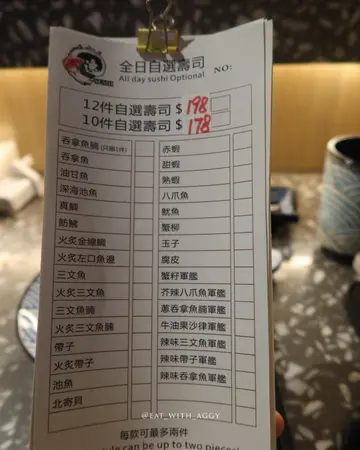 全日自選壽司 NO:
All day sushi Optional
12件自選壽司 $ 198
10件自選壽司 $ 178
吞拿魚腩 (只限1件)
吞拿魚
油甘魚
深海池魚
真鯛
魴鮄
火炙金線鯛
火炙左口魚邊
三文魚
火炙三文魚
三文魚腩
火炙三文魚腩
帶子
火炙帶子
池魚
北寄貝
赤蝦
甜蝦
熟蝦
八爪魚
魷魚
蟹柳
玉子
腐皮
蟹籽軍艦
芥辣八爪魚軍艦
蔥吞拿魚腩軍艦
牛油果沙律軍艦
辣味三文魚軍艦
辣味帶子軍艦
辣味吞拿魚軍艦
@EAT_WITH_AGGY
每款可最多兩件
can be up to two pieces